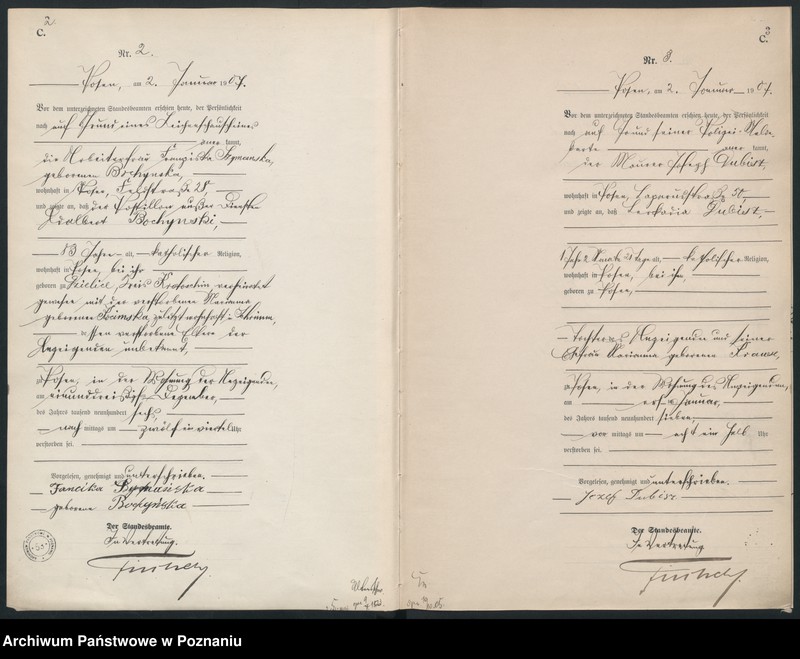 2
C.
Nr. 2.
Posen, am 2. Januar 1907.
Vor dem unterzeichneten Standesbeamten erschien heute, der Persönlichkeit
nach auf Grund eines Leichenschauscheines
kannt,
die Arbeiterfrau Franziska Szymanska,
geborenen Bochynska,
wohnhaft in Posen, Feldstraße 28,
und zeigte an, daß der Postillon außer Diensten
Adalbert Bochynski,
83 Jahre alt, katholischer Religion,
wohnhaft in Posen, bei ihr
geboren zu Kreis Krotoschin verheiratet
gewesen mit der verstorbenen Marianna
geborenen zuletzt wohnhaft in
dessen verstorbene Eltern der
Anzeigenden unbekannt,
zu Posen, in der Wohnung der Anzeigenden,
am einunddreißigsten Dezember,
des Jahres tausend neunhundert sechs
nach mittags um zwölf ein viertel Uhr
verstorben sei.
Vorgelesen, genehmigt und unterschrieben.
Szymańska
geborene Bochyńska
Der Standesbeamte.
In Vertretung.
C.
3
Nr. 3.
Posen, am 2. Januar 1907.
Vor dem unterzeichneten Standesbeamten erschien heute, der Persönlichkeit
nach auf Grund seiner Polizei-Melde-
karte kannt,
der Maurer Joseph Dubisz,
wohnhaft in Posen, 50,
und zeigte an, daß Leokadia Dubisz,
1 Jahr 2 Monate 21 Tage alt, katholischer Religion,
wohnhaft in Posen, bei ihm,
geboren zu Posen,
Tochter des Anzeigenden und seiner
Ehefrau Marianna geborenen Krause,
zu Posen, in der Wohnung des Anzeigenden,
am ersten Januar,
des Jahres tausend neunhundert sieben,
vor mittags um acht ein halb Uhr
verstorben sei.
Vorgelesen, genehmigt und unterschrieben.
Jozef Dubisz
Der Standesbeamte.
In Vertretung
Archiwum Państwowe w Poznaniu